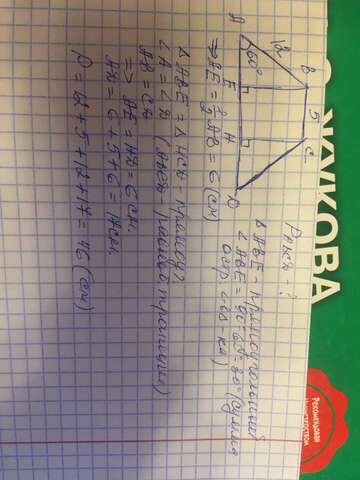 Pавсд - ?
A
60°
12
B
5
C
E
H
D
Δ ABE - прямоугольный
∠ABE = 90°-60° = 30° (сумма
остр. углов)
=> AE = 1/2 AB = 6 (см)
Δ ABE = Δ HCD - прямоуг.
∠A = ∠D (АВСД - равноб. трапеция)
AB = CD
=> AE = HD = 6 см.
AD = 6 + 5 + 6 = 17 см.
P = 12 + 5 + 12 + 17 = 46 (см)
ЖУКОВА
Рекомендован
МИНИСТЕРСТВОМ